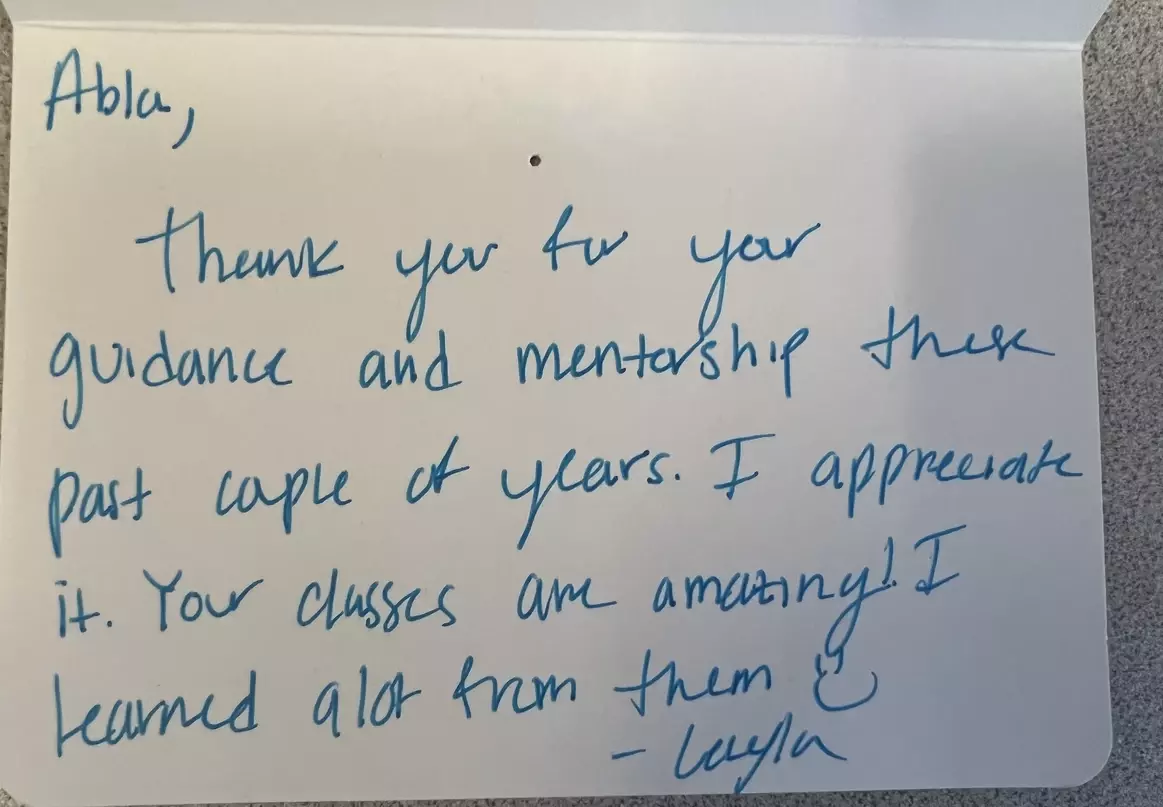 Abla,
Thank you for your
guidance and mentorship these
past couple of years. I appreciate
it. Your classes are amazing! I
learned a lot from them :)
- Layla